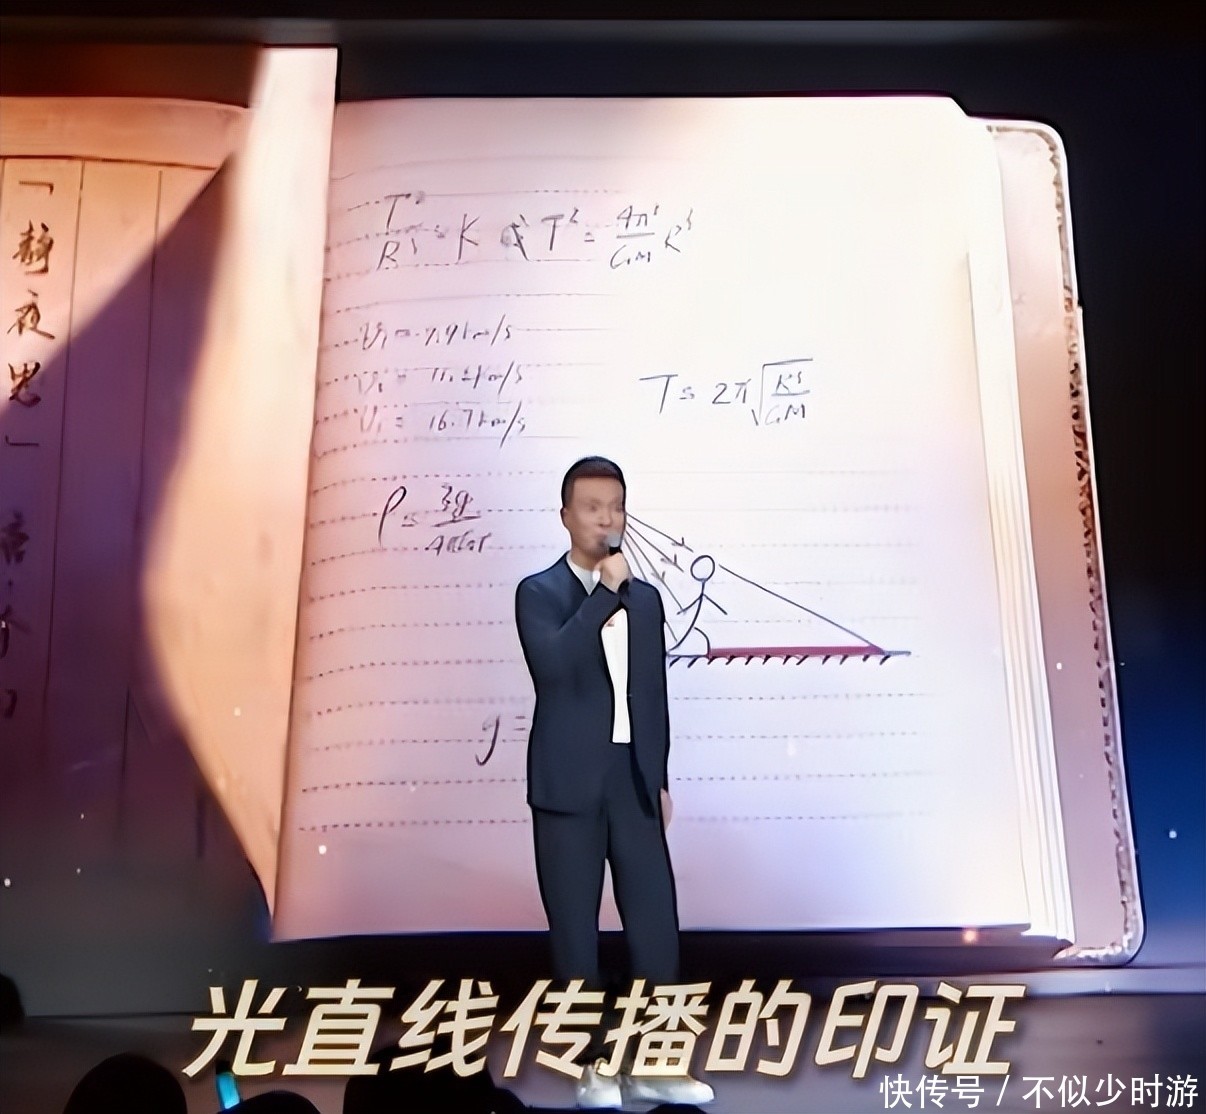 「静夜思」
T²/R³ = K 或 T² = 4π²/GM R³
V₁ = 7.9km/s
11.2km/s
16.7km/s
T = 2π√(R³/GM)
ρ = 3g/4πGr
g =
光直线传播的印证
快传号 / 不似少时游